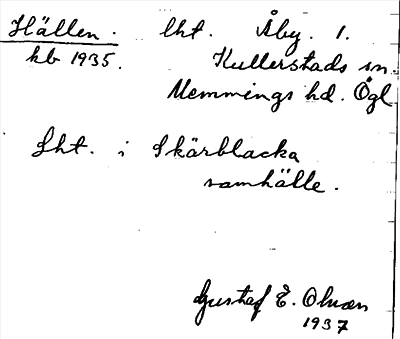 Hällen. lht. Åby. 1.
kb 1935. Kullerstads sn.
Memmings hd. Ögl
Lht. i Skärblacka
samhälle.
Gustaf E. Olvæn
1937